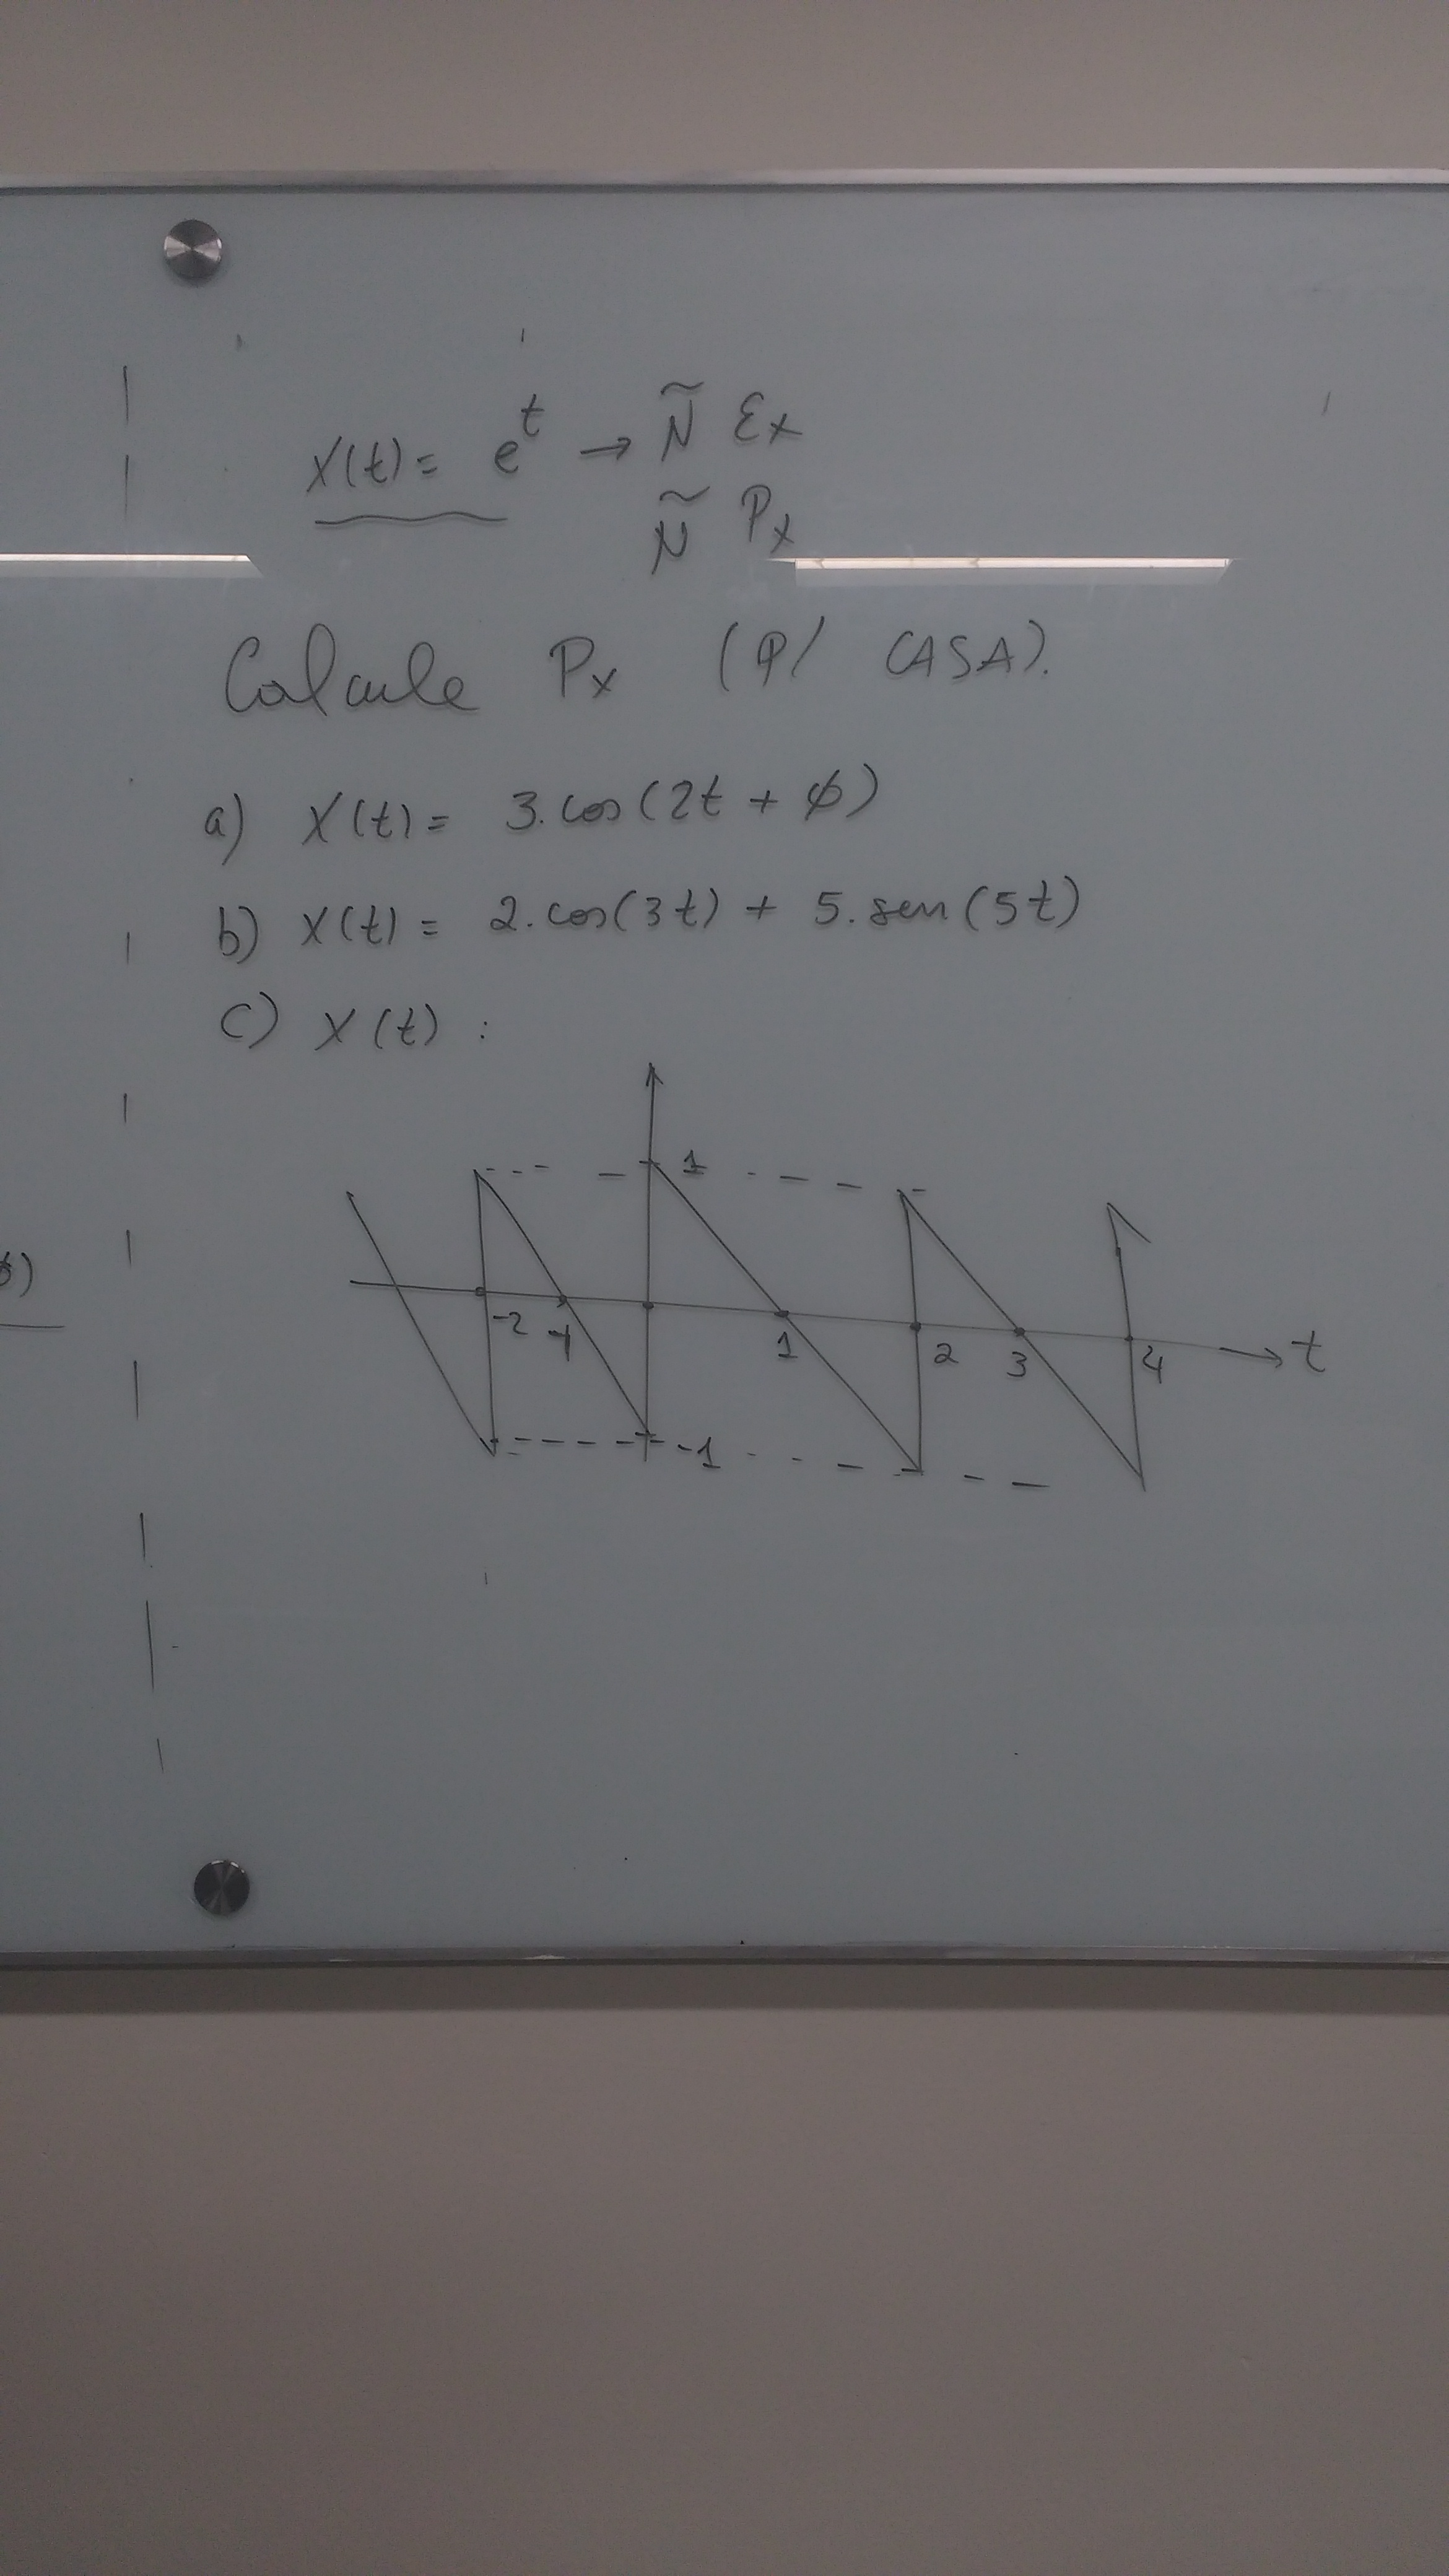 X(t) = e^t → Ñ Ɛx
Ñ Px
Calcule Px (P/ CASA).
a) X(t) = 3.cos(2t + ϕ)
b) X(t) = 2.cos(3t) + 5.sen(5t)
c) X(t) :
1
-2 -1 1 2 3 4 t
-1